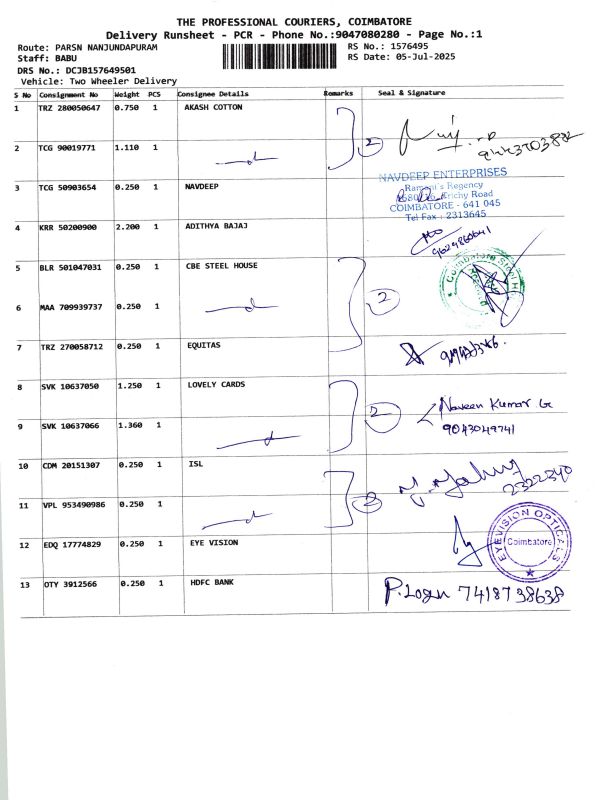 THE PROFESSIONAL COURIERS, COIMBATORE
Delivery Runsheet - PCR - Phone No.:9047080280 - Page No.:1
Route: PARSN NANJUNDAPURAM RS No.: 1576495
Staff: BABU RS Date: 05-Jul-2025
DRS No.: DCJB157649501
Vehicle: Two Wheeler Delivery
S No Consignment No Weight PCS Consignee Details Remarks Seal & Signature
1 TRZ 280050647 0.750 1 AKASH COTTON
2 TCG 90019771 1.110 1 2
3 TCG 50903654 0.250 1 NAVDEEP
NAVDEEP ENTERPRISES
Ramani's Regency
Trichy Road
COIMBATORE - 641 045
Tel Fax : 2313645
4 KRR 50200900 2.200 1 ADITHYA BAJAJ
5 BLR 501047031 0.250 1 CBE STEEL HOUSE
Coimbatore Steel
6 MAA 709939737 0.250 1 2
7 TRZ 270058712 0.250 1 EQUITAS
8 SVK 10637050 1.250 1 LOVELY CARDS
2 Naveen Kumar G
9 SVK 10637066 1.360 1 9043049741
10 CDM 20151307 0.250 1 ISL
2322340
11 VPL 953490986 0.250 1 2
12 EDQ 17774829 0.250 1 EYE VISION
EYEVISION OPTICALS
Coimbatore
13 OTY 3912566 0.250 1 HDFC BANK P. Logan 7418738638